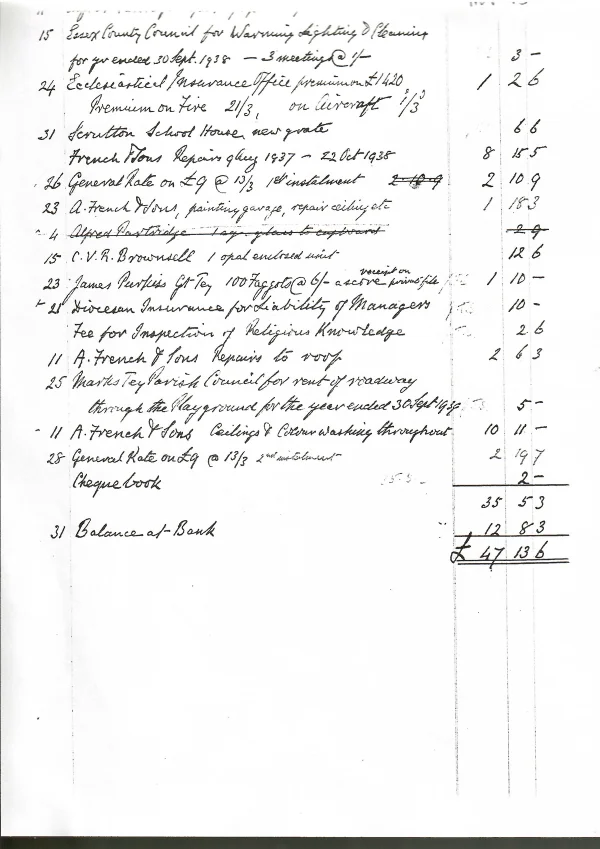 15 Essex County Council for Warming Lighting & Cleaning
for yr ended 30 Sept. 1938 — 3 meetings @ 1/- 3 -
24 Ecclesiastical Insurance Office premium on £1420 1 2 6
Premium on Fire 2/3, on Aircraft 1/3
31 School House, new grate 6 6
French & Sons Repairs 9 Aug 1937 - 22 Oct 1938 8 15 5
26 General Rate on £9 @ 13/3 1st instalment 2 10 9 2 10 9
23 A. French & Sons, painting garage, repair ceiling etc 1 18 3
4 Alfred Partridge 1 glass to cupboard 2 9
15 C.V.R. Brownsell 1 opal enclosed unit 12 6
23 James Purkiss Gt Tey 100 Faggots @ 6/- a score receipt on private file 1 10 -
21 Diocesan Insurance for Liability of Managers 10 -
Fee for Inspection of Religious Knowledge 2 6
11 A. French & Sons Repairs to roof 2 6 3
25 Marks Tey Parish Council for rent of roadway
through the Playground for the year ended 30 Sept 5 -
11 A. French & Sons Ceilings & Colour washing throughout 10 11 -
28 General Rate on £9 @ 13/3 2nd instalment 2 19 7
Cheque book 2 -
35 5 3
31 Balance at Bank 12 8 3
£ 47 13 6